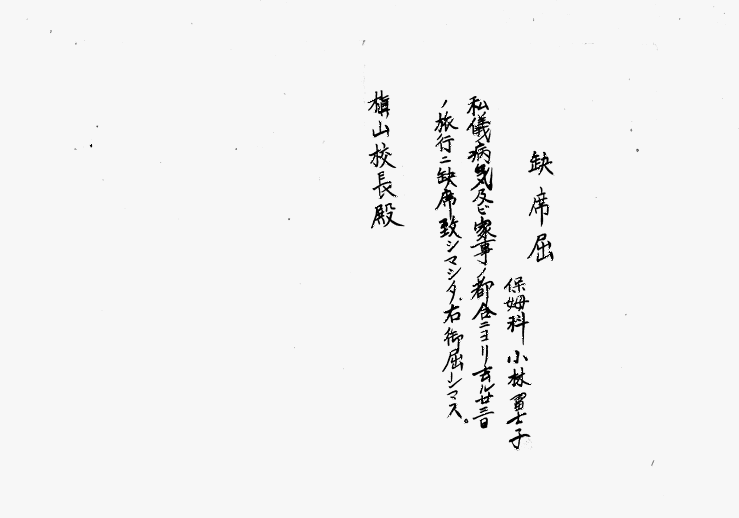 缺席屆
保姆科 小林 子
私儀病気及ビ家事ノ都合ニヨリ去ル廿三日
ノ旅行ニ缺席致シマシタ。右御屆シマス。
山校長殿